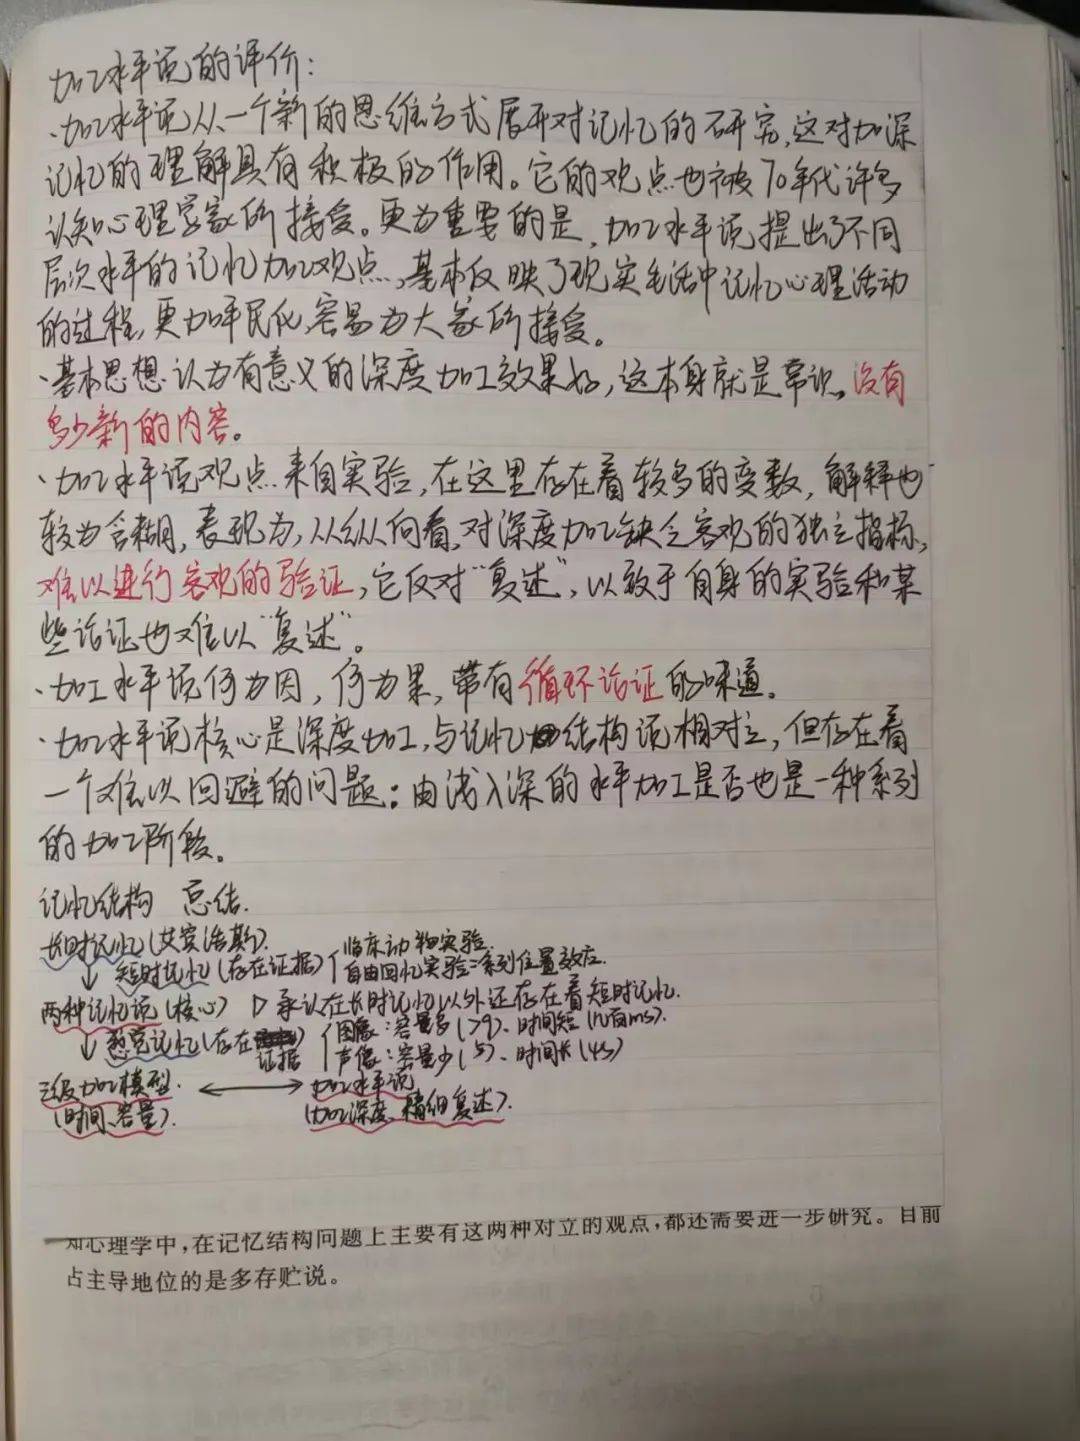 加工水平说的评价:
·加工水平说从一个新的思维方式展开对记忆的研究,这对加深
记忆的理解具有积极的作用。它的观点也被70年代许多
认知心理学家所接受。更为重要的是,加工水平说提出了不同
层次水平的记忆加工观点,基本反映了现实生活中记忆心理活动
的过程,更加平民化,容易为大家所接受。
·基本思想认为有意义的深度加工效果好,这本身就是常识,没有
多少新的内容。
·加工水平说观点来自实验,在这里存在着较多的变数,解释也
较为含糊,表现为,从纵向看,对深度加工缺乏客观的独立指标,
难以进行客观的验证,它反对“复述”,以致于自身的实验和某
些论证也难以“复述”。
·加工水平说何为因,何为果,带有循环论证的味道。
·加工水平说核心是深度加工,与记忆结构说相对立,但存在着
一个难以回避的问题:由浅入深的水平加工是否也是一种系列
的加工阶段。
记忆结构 总结.
长时记忆(艾宾浩斯).
↓ 短时记忆(存在证据) { 临床动物实验.
自由回忆实验:系列位置效应.
两种记忆说(核心) ▷ 承认在长时记忆以外还存在着短时记忆.
↓ 感觉记忆(存在证据) { 图像:容量多(>9)、时间短(几百ms).
声像:容量少(5)、时间长(4s)
三级加工模型. ⟷ 加工水平说
(时间、容量). (加工深度、精细复述).
知心理学中,在记忆结构问题上主要有这两种对立的观点,都还需要进一步研究。目前
占主导地位的是多存贮说。